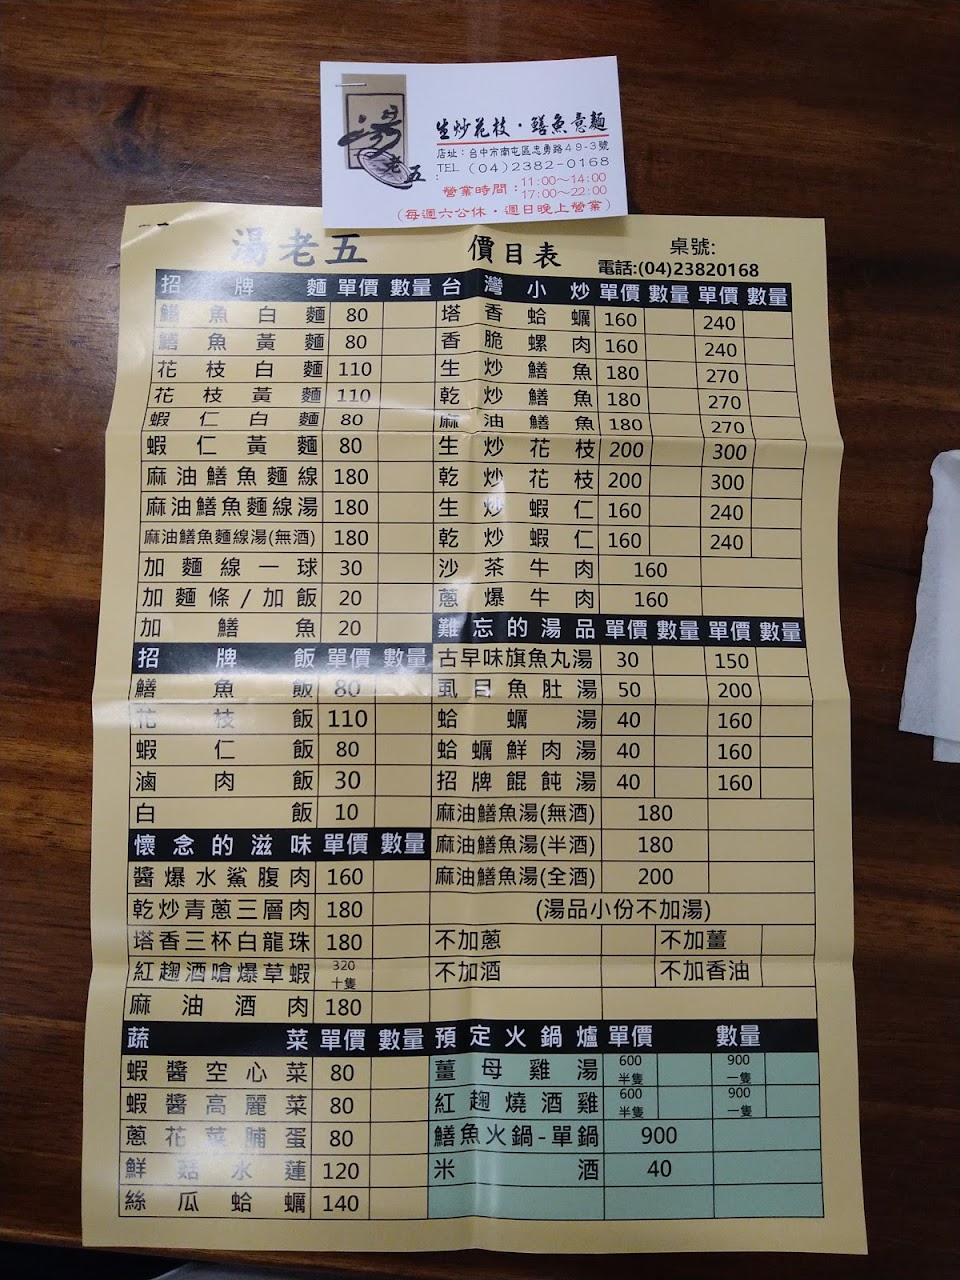 湯
老五
生炒花枝・鱔魚意麵
店址：台中市南屯區忠勇路49-3號
TEL：(04)2382-0168
營業時間：11:00～14:00
17:00～22:00
(每週六公休・週日晚上營業)
湯老五 價目表 桌號:
電話:(04)23820168
招牌麵 單價 數量 台灣小炒 單價 數量 單價 數量
鱔魚白麵 80 塔香蛤蠣 160 240
鱔魚黃麵 80 香脆螺肉 160 240
花枝白麵 110 生炒鱔魚 180 270
花枝黃麵 110 乾炒鱔魚 180 270
蝦仁白麵 80 麻油鱔魚 180 270
蝦仁黃麵 80 生炒花枝 200 300
麻油鱔魚麵線 180 乾炒花枝 200 300
麻油鱔魚麵線湯 180 生炒蝦仁 160 240
麻油鱔魚麵線湯(無酒) 180 乾炒蝦仁 160 240
加麵線一球 30 沙茶牛肉 160
加麵條/加飯 20 蔥爆牛肉 160
加鱔魚 20 難忘的湯品 單價 數量 單價 數量
招牌飯 單價 數量 古早味旗魚丸湯 30 150
鱔魚飯 80 虱目魚肚湯 50 200
花枝飯 110 蛤蠣湯 40 160
蝦仁飯 80 蛤蠣鮮肉湯 40 160
滷肉飯 30 招牌餛飩湯 40 160
白飯 10 麻油鱔魚湯(無酒) 180
懷念的滋味 單價 數量 麻油鱔魚湯(半酒) 180
醬爆水鯊腹肉 160 麻油鱔魚湯(全酒) 200
乾炒青蔥三層肉 180 (湯品小份不加湯)
塔香三杯白龍珠 180 不加蔥 不加薑
紅趜酒嗆爆草蝦 320 十隻 不加酒 不加香油
麻油酒肉 180
蔬菜 單價 數量 預定火鍋爐 單價 數量
蝦醬空心菜 80 薑母雞湯 600 半隻 900 一隻
蝦醬高麗菜 80 紅趜燒酒雞 600 半隻 900 一隻
蔥花菜脯蛋 80 鱔魚火鍋-單鍋 900
鮮菇水蓮 120 米酒 40
絲瓜蛤蠣 140